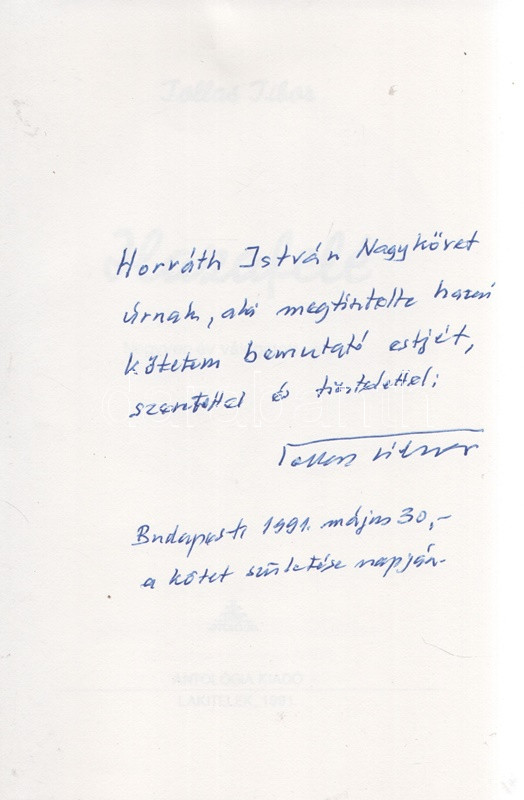 Tollas Tibor
Hazafelé
Horváth István Nagykövet
úrnak, aki megtisztelte hazai
kötetem bemutató estjét,
szeretettel és tisztelettel:
Tollas Tibor
Budapest, 1991. május 30,-
a kötet születése napján.
ANTOLÓGIA KIADÓ
LAKITELEK, 1991